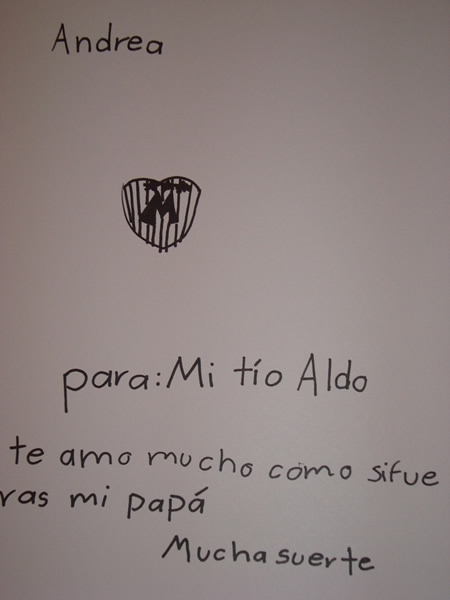 Andrea
M
para: Mi tío Aldo
te amo mucho como sifue
ras mi papá
Mucha suerte